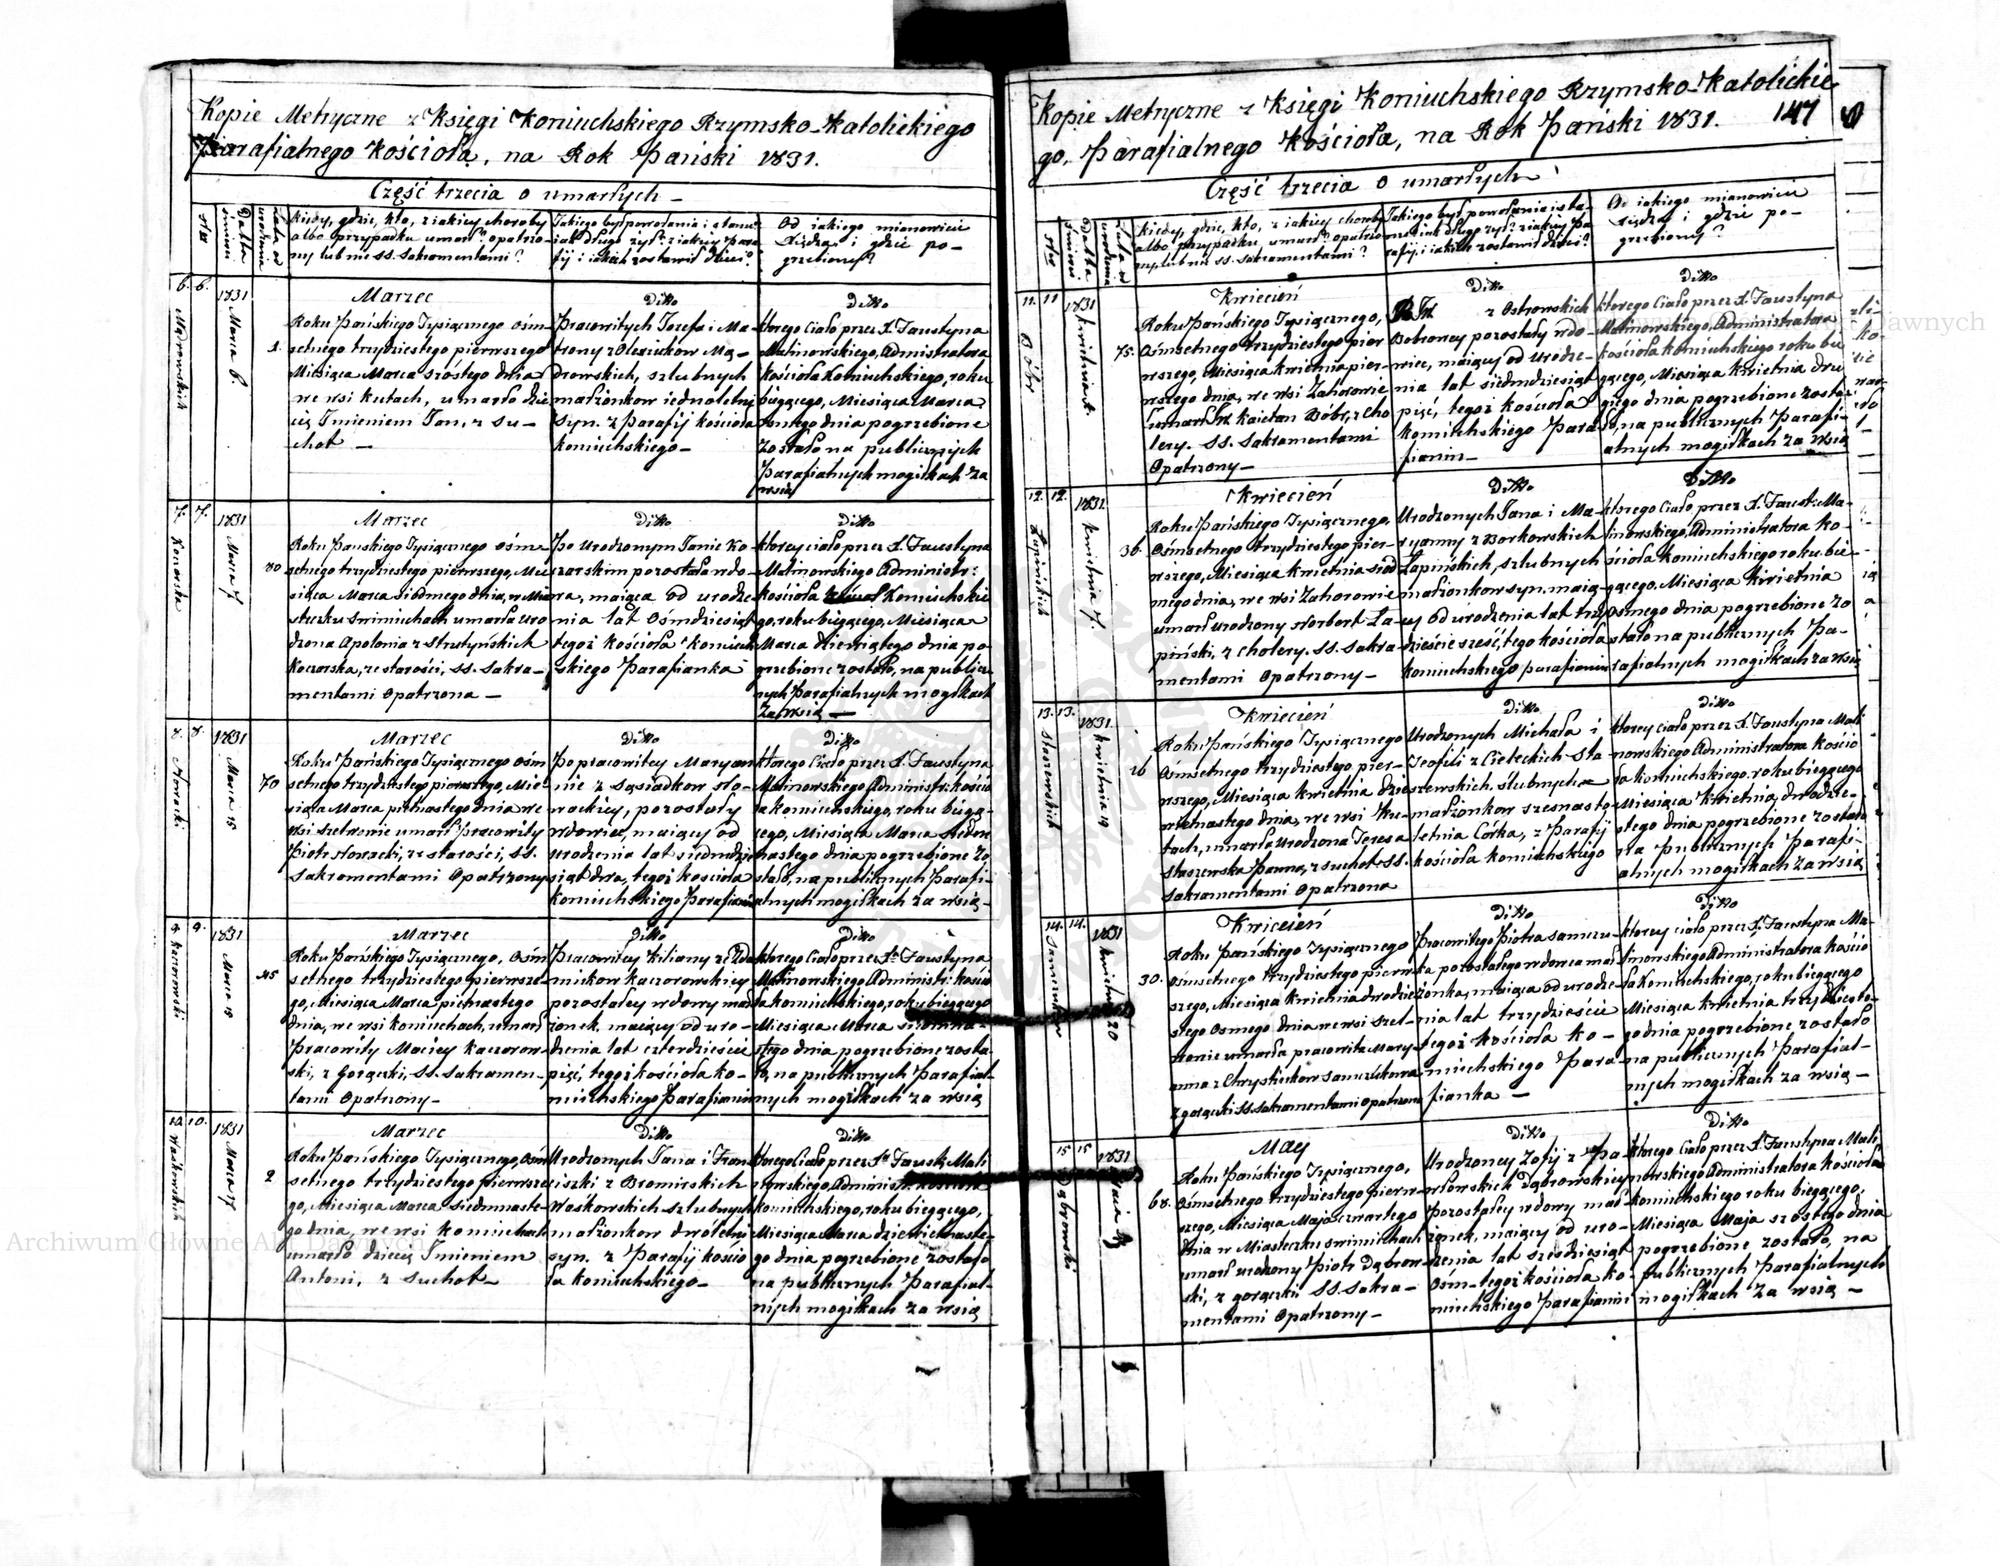 Kopie Metryczne z Księgi Koniuchskiego Rzymsko-Katolickiego
Parafialnego Kościoła, na Rok Pański 1831.
Część trzecia o umarłych
Kiedy, gdzie, kto, z iakiey choroby
albo przypadku umarł? opatrzo-
ny lub nie SS. Sakramentami?
Jakiego był powołania i stanu
iak długo żył? z iakiey Para
fij i iakich zostawił dzieci?
Od iakiego mianowicie
Xiędza i gdzie po-
grzebiony?
6. 6. 1831 Marca 6.
1.
Marzec
Roku Pańskiego Tysiącznego ośm-
setnego trzydziestego pierwszego
Miesiąca Marca szóstego dnia
we wsi Kutach, umarło dzie
cię Imieniem Jan, z su-
chot —
Ditto
Pracowitych Jozefa i Ma-
trony z Olexiukow Mą-
drowskich, szlubnych
małżonkow iednoletni
Syn. z Parafij kościoła
Koniuchskiego —
Ditto
ktorego Ciało przez X. Faustyna
Malinowskiego, Administratora
Kościoła Koniuchskiego, roku
biegącego, Miesiąca Marca
osmego dnia pogrzebione
zostało na publicznych
Parafialnych mogiłkach za
wsią
7. 7. 1831 Marca 7
80
Marzec
Roku Pańskiego Tysiącznego ośm-
setnego trzydziestego pierwszego, Mie
siąca Marca siodmego dnia, w Mia
steczku Swimiuchach umarła uro
dzona Apolonia z Strutyńskich
Koczorska, ze starości, SS. Sakra-
mentami Opatrzona —
Ditto
Po Urodzonym Janie Ko-
czarskim pozostała wdo-
wa, maiąca od urodze
nia lat Ośmdziesiąt
tegoż kościoła Koniuch
skiego Parafianka
Ditto
ktorey ciało przez X. Faustyna
Malinowskiego Administr:
kościoła Koniuchskie
go, roku biegącego, Miesiąca
Marca dziewiątego dnia po
grzebione zostało, na publicz
nych Parafialnych mogiłkach
za wsią —
8. 8. 1831 Marca 15
Nowacki
70
Marzec
Roku Pańskiego Tysiącznego ośm
setnego trzydziestego pierwszego, Mie
siąca Marca piętnastego dnia we
wsi Szelwowie umarł Pracowity
Piotr Nowacki, ze starości, SS.
Sakramentami Opatrzony
Ditto
Po pracowitey Maryan
nie z Sąsiadkow No-
wackiey, pozostały
wdowiec, maiący od
urodzenia lat siedmdzie
siąt dwa, tegoż kościoła
Koniuchskiego Parafianin
Ditto
ktorego Ciało przez X. Faustyna
Malinowskiego Administr: kościo
ła koniuchskiego, roku biegą-
cego, Miesiąca Marca siedm
nastego dnia pogrzebione zo
stało, na publicznych Parafi-
alnych mogiłkach za wsią —
9. 9. 1831 Marca 15
Kaczorowski
45
Marzec
Roku Pańskiego Tysiącznego, Ośm
setnego trzydziestego pierwsze-
go, Miesiąca Marca piętnastego
dnia, we wsi Koniuchach, umarł
Pracowity Maciey Kaczorow-
ski, z Gorączki, SS. Sakramen-
tami Opatrzony —
Ditto
Pracowitey Kiliany
Kaczorowskiey
pozostałey wdowy mał
żonek, maiący od uro-
dzenia lat czterdzieście
pięć, tegoż kościoła Ko-
niuchskiego Parafianin
Ditto
ktorego Ciało przez X. Faustyna
Malinowskiego Administr: kościo
ła Koniuchskiego, roku biegącego
Miesiąca Marca
stego dnia pogrzebione zosta-
ło, na publicznych Parafial-
nych mogiłkach za wsią
10. 10. 1831 Marca 17
Waskowskich
2
Marzec
Roku Pańskiego Tysiącznego, Ośm
setnego trzydziestego pierwsze-
go, Miesiąca Marca siedmnaste-
go dnia, we wsi Koniuchach
umarło dziecię Imieniem
Antoni, z suchot —
Ditto
Urodzonych Jana i Fran
ciszki z Bromirskich
Waskowskich szlubnych
małżonkow dwóletni
syn. z Parafij kościo
ła Koniuchskiego —
Ditto
ktorego Ciało przez X. Faust: Mali
nowskiego, Administr: Kościoła
Koniuchskiego, roku biegącego,
Miesiąca Marca dziewiętnaste-
go dnia pogrzebione zostało
na publicznych Parafial-
nych mogiłkach za wsią
Kopie Metryczne z Księgi Koniuchskiego Rzymsko-Katolickie
go, Parafialnego Kościoła, na Rok Pański 1831. 147
Część trzecia o umarłych
Kiedy, gdzie, kto, z iakiey choroby
albo przypadku umarł? opatrzo-
ny lub nie SS. Sakramentami?
Jakiego był powołania i sta-
nu iak długo żył? z iakiey Pa
rafij i iakich zostawił dzieci?
Od iakiego mianowicie
Xiędza i gdzie po-
grzebiony?
11. 11 1831 Kwietnia 1.
Bóbr
75.
Kwiecień
Roku Pańskiego Tysiącznego,
Ośmsetnego trzydziestego pier
wszego, Miesiąca kwietnia pier-
wszego dnia, we wsi Zahorowie
umarł Kaietan Bóbr, z Cho
lery. SS. Sakramentami
Opatrzony —
Ditto
z Ostrowskich
Bobrowey pozostały wdo-
wiec, maiący od Urodze-
nia lat siedmdziesiąt
pięć, tegoż kościoła
Koniuchskiego Para-
fianin —
Ditto
ktorego Ciało przez X. Faustyna
Malinowskiego, Administratora
kościoła Koniuchskiego roku bie
gącego, Miesiąca Kwietnia dru
giego dnia pogrzebione zosta-
ło, na publicznych Parafi-
alnych mogiłkach za wsią
12. 12. 1831. Kwietnia 7.
Łapińskich
36.
Kwiecień
Roku Pańskiego Tysiącznego,
Ośmsetnego trzydziestego pier-
wszego, Miesiąca kwietnia siod
mego dnia, we wsi Zahorowie
umarł urodzony Norbert Ła-
piński, z Cholery. SS. Sakra
mentami Opatrzony —
Ditto
Urodzonych Jana i Ma-
ryanny z Borkowskich
Łapińskich, szlubnych
małżonkow syn, maią
cy od urodzenia lat trzy
dzieście sześć, tego kościoła
Koniuchskiego parafianin
Ditto
ktorego Ciało przez X. Faust: Ma-
linowskiego, Administratora ko-
ścioła Koniuchskiego roku bie-
gącego, Miesiąca Kwietnia
Osmego dnia pogrzebione zo
stało na publicznych Pa-
rafialnych mogiłkach za wsią
13. 13. 1831. Kwietnia 19
16
Kwiecień
Roku Pańskiego Tysiącznego
Ośmsetnego trzydziestego pier-
wszego, Miesiąca Kwietnia dzie
wietnastego dnia, we wsi Ku-
tach, umarła Urodzona Teresa
Staszewska Panna, z suchot SS.
Sakramentami Opatrzona
Ditto
Urodzonych Michała i
Teofili z Cieleckich Sta
szewskich, ślubnych
małżonkow szesnasto-
letnia Córka, z Parafij
kościoła Koniuchskiego
Ditto
ktorey ciało przez X. Faustyna Mali
nowskiego Administratora kościo
ła Koniuchskiego, roku biegącego
Miesiąca Kwietnia, dwudzie-
stego dnia pogrzebione zostało
na publicznych Parafi-
alnych mogiłkach za wsią
14. 14. 1831 Kwietnia
30.
Kwiecień
Roku Pańskiego Tysiącznego
Ośmsetnego trzydziestego pierw-
szego, Miesiąca kwietnia dwudzie
stego Osmego dnia we wsi Szel-
wowie umarła pracowita Mary-
anna z Samczukowa
z gorączki SS. sakramentami opatrzona
Ditto
Pracowitego Piotra Samczu-
ka pozostałego wdowca mał
żonka, maiąca od urodze-
nia lat trzydzieście
tegoż kościoła Ko-
niuchskiego Para
fianka —
Ditto
ktorey ciało przez X. Faustyna Ma-
linowskiego Administratora kościo
ła Koniuchskiego, roku biegącego
Miesiąca Kwietnia trzydziesto-
go dnia pogrzebione zostało
na publicznych Parafial-
nych mogiłkach za wsią —
15 15 1831 Maia
Dąbrowski
68.
May
Roku Pańskiego Tysiącznego,
Ośmsetnego trzydziestego pierw-
szego, Miesiąca Maja czwartego
dnia w Miasteczku Swimiuchach
umarł urodzony Piotr Dąbrow-
ski, z gorączki SS. Sakra-
mentami Opatrzony —
Ditto
Urodzoney Zofij z Pa-
włowskich Dąbrowskiey
Pozostałey wdowy mał
żonek, maiący od uro-
dzenia lat sześdziesiąt
Ośm- tegoż kościoła ko-
niuchskiego Parafianin
Ditto
ktorego Ciało przez X. Faustyna Mali
nowskiego Administratora Kościoła
Koniuchskiego roku biegącego,
Miesiąca Maja szostego dnia
pogrzebione zostało, na
publicznych Parafialnych
mogiłkach za wsią —
Archiwum Główne Akt Dawnych